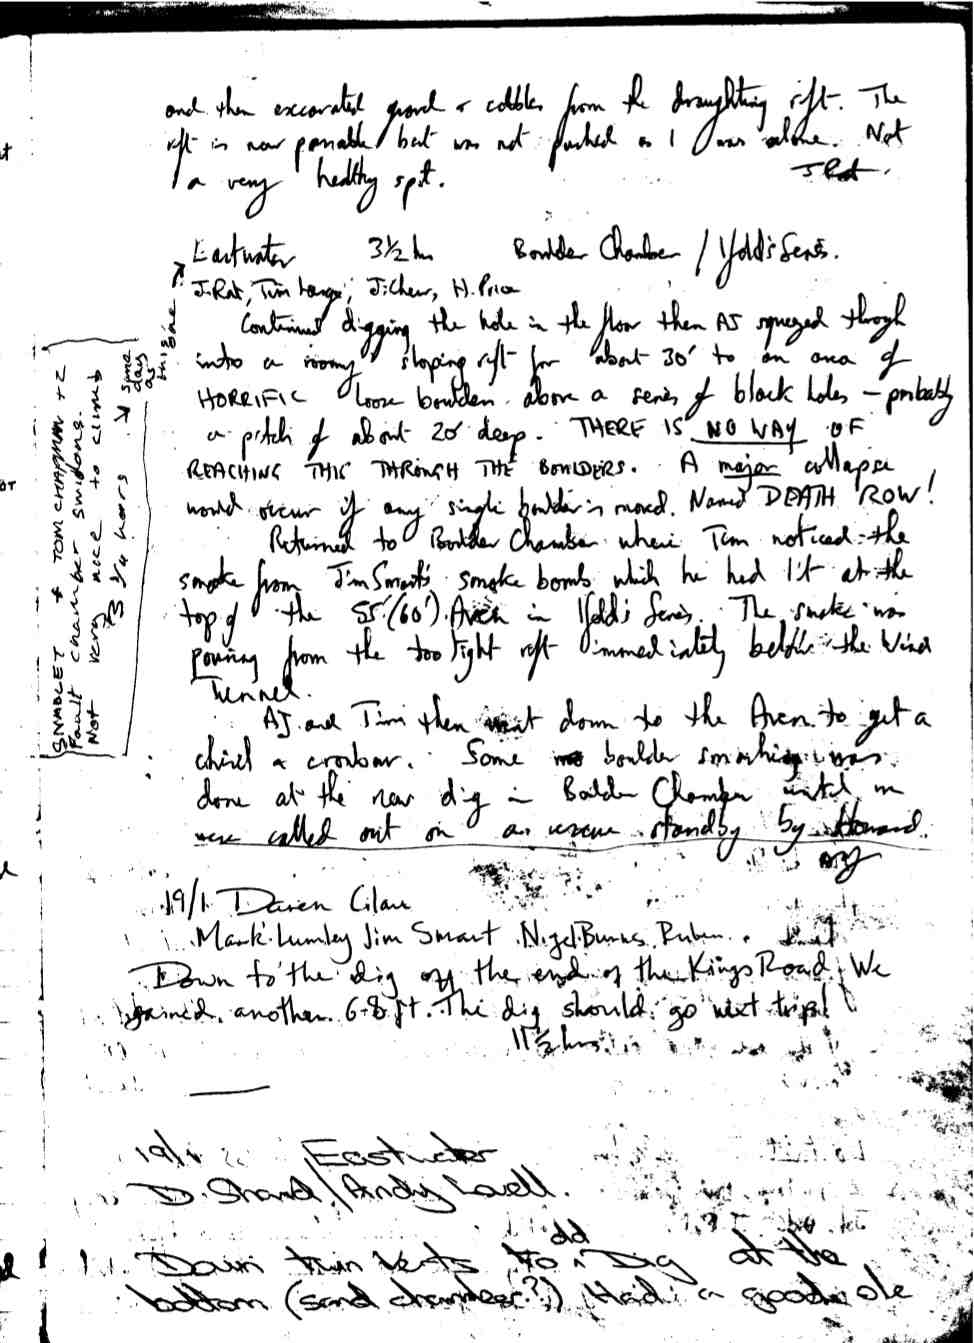 and then excavated gravel & cobbles from the draughting rift. The
rift is now passable but was not pushed as I was alone. Not
a very healthy spot.
J.Rat.
Eastwater 3½ hrs Boulder Chamber / Ifold's Series.
J.Rat, Tim Large, J.Chew, H.Price
Continued digging the hole in the floor then AJ squeezed through
into a roomy sloping rift for about 30' to an area of
HORRIFIC loose boulders above a series of black holes – probably
a pitch of about 20' deep. THERE IS NO WAY OF
REACHING THIS THROUGH THE BOULDERS. A major collapse
would occur if any single boulder is moved. Named DEATH ROW!
Returned to Boulder Chamber where Tim noticed the
smoke from Jim Smart's smoke bomb which he had lit at the
top of the 55' (60') Aven in Ifold's Series. The smoke was
pouring from the too tight rift immediately below the Wind
Tunnel.
AJ and Tim then went down to the Aven to get a
chisel & crowbar. Some boulder smashing was
done at the new dig in Boulder Chamber until we
were called out on a rescue standby by Howard.
SNABLET & TOM CHAPMAN +2
Fault chamber Swildons.
Not very nice to climb
3 ¼ hours
same
day
as
this
one
19/1 Daren Cilau
Mark Lumley Jim Smart Nigel Burns Ruben
Down to the dig off the end of the Kings Road. We
gained another 6-8 ft. The dig should go next trip!
11½ hrs
19/1 Eastwater
D. Shand / Andy Lovell.
Down twin Verts to odd Dig at the
bottom (sand chamber?) Had a good ole